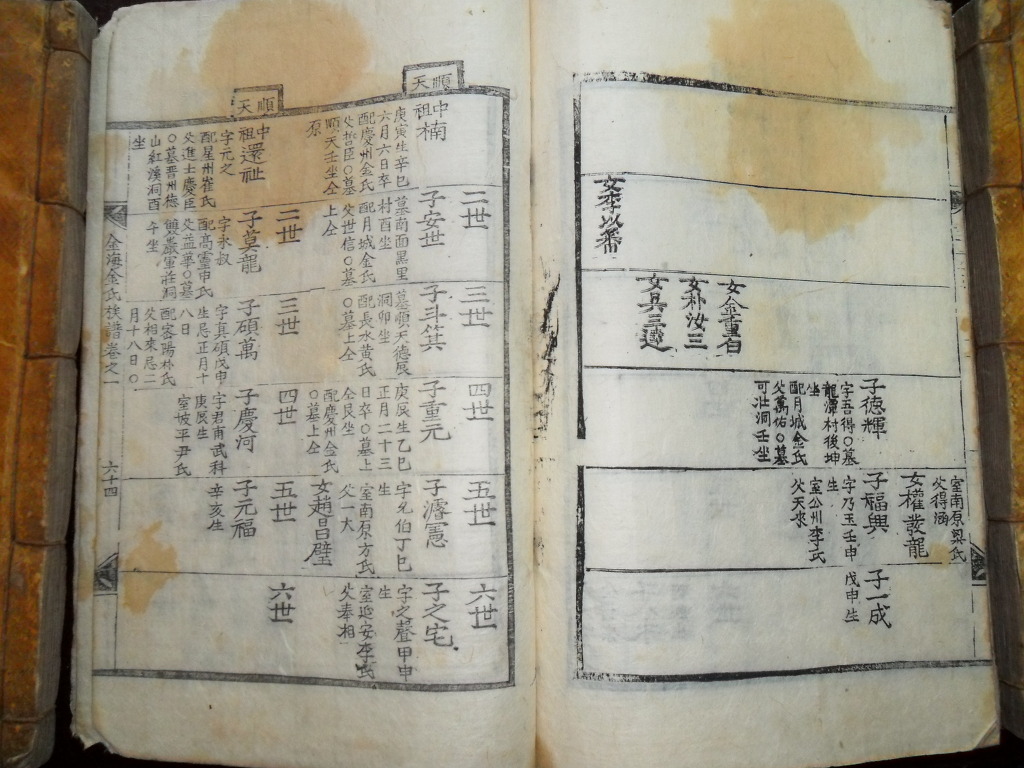 室南原梁氏
父得涵
女權發龍
子德輝
字吾得○墓
龍潭村後坤
坐
配月城金氏
父萬佑○墓
可壯洞壬坐
子福興
字乃玉壬申
生
室公州李氏
父天來
子一成
戊申生
女朴汝三
女李以蕃
順天
中祖楠
庚寅生辛巳
六月六日卒
配慶州金氏
父哲臣○墓
順天壬坐仝
原
二世
子安世
墓南面黑里
村酉坐
配月城金氏
父世信○墓
上仝
三世
子斗箕
墓順天德展
洞卯坐
配長水黃氏
○墓上仝
四世
子重元
庚辰生乙巳
正月二十三
日卒○墓上
仝艮坐
配慶州金氏
○墓上仝
五世
子濬憲
字兄伯丁巳
生
室南原方氏
父一大
女趙昌璧
六世
子之宅
字之聲甲申
生
室延安李氏
父奉相
順天
中祖還祉
字元之
配星州崔氏
父進士慶臣
○墓晋州德
山紅溪洞酉
坐
二世
子莫龍
字永叔
配高靈申氏
父益華○墓
雙巖軍莊洞
午坐
三世
子碩萬
字眞碩戊申
生忌正月十
八日
配密陽朴氏
父相來忌二
月十八日○
四世
子慶河
字君甫武科
庚辰生
室坡平尹氏
五世
子元福
辛亥生
六世
金海金氏族譜卷之一
六十四